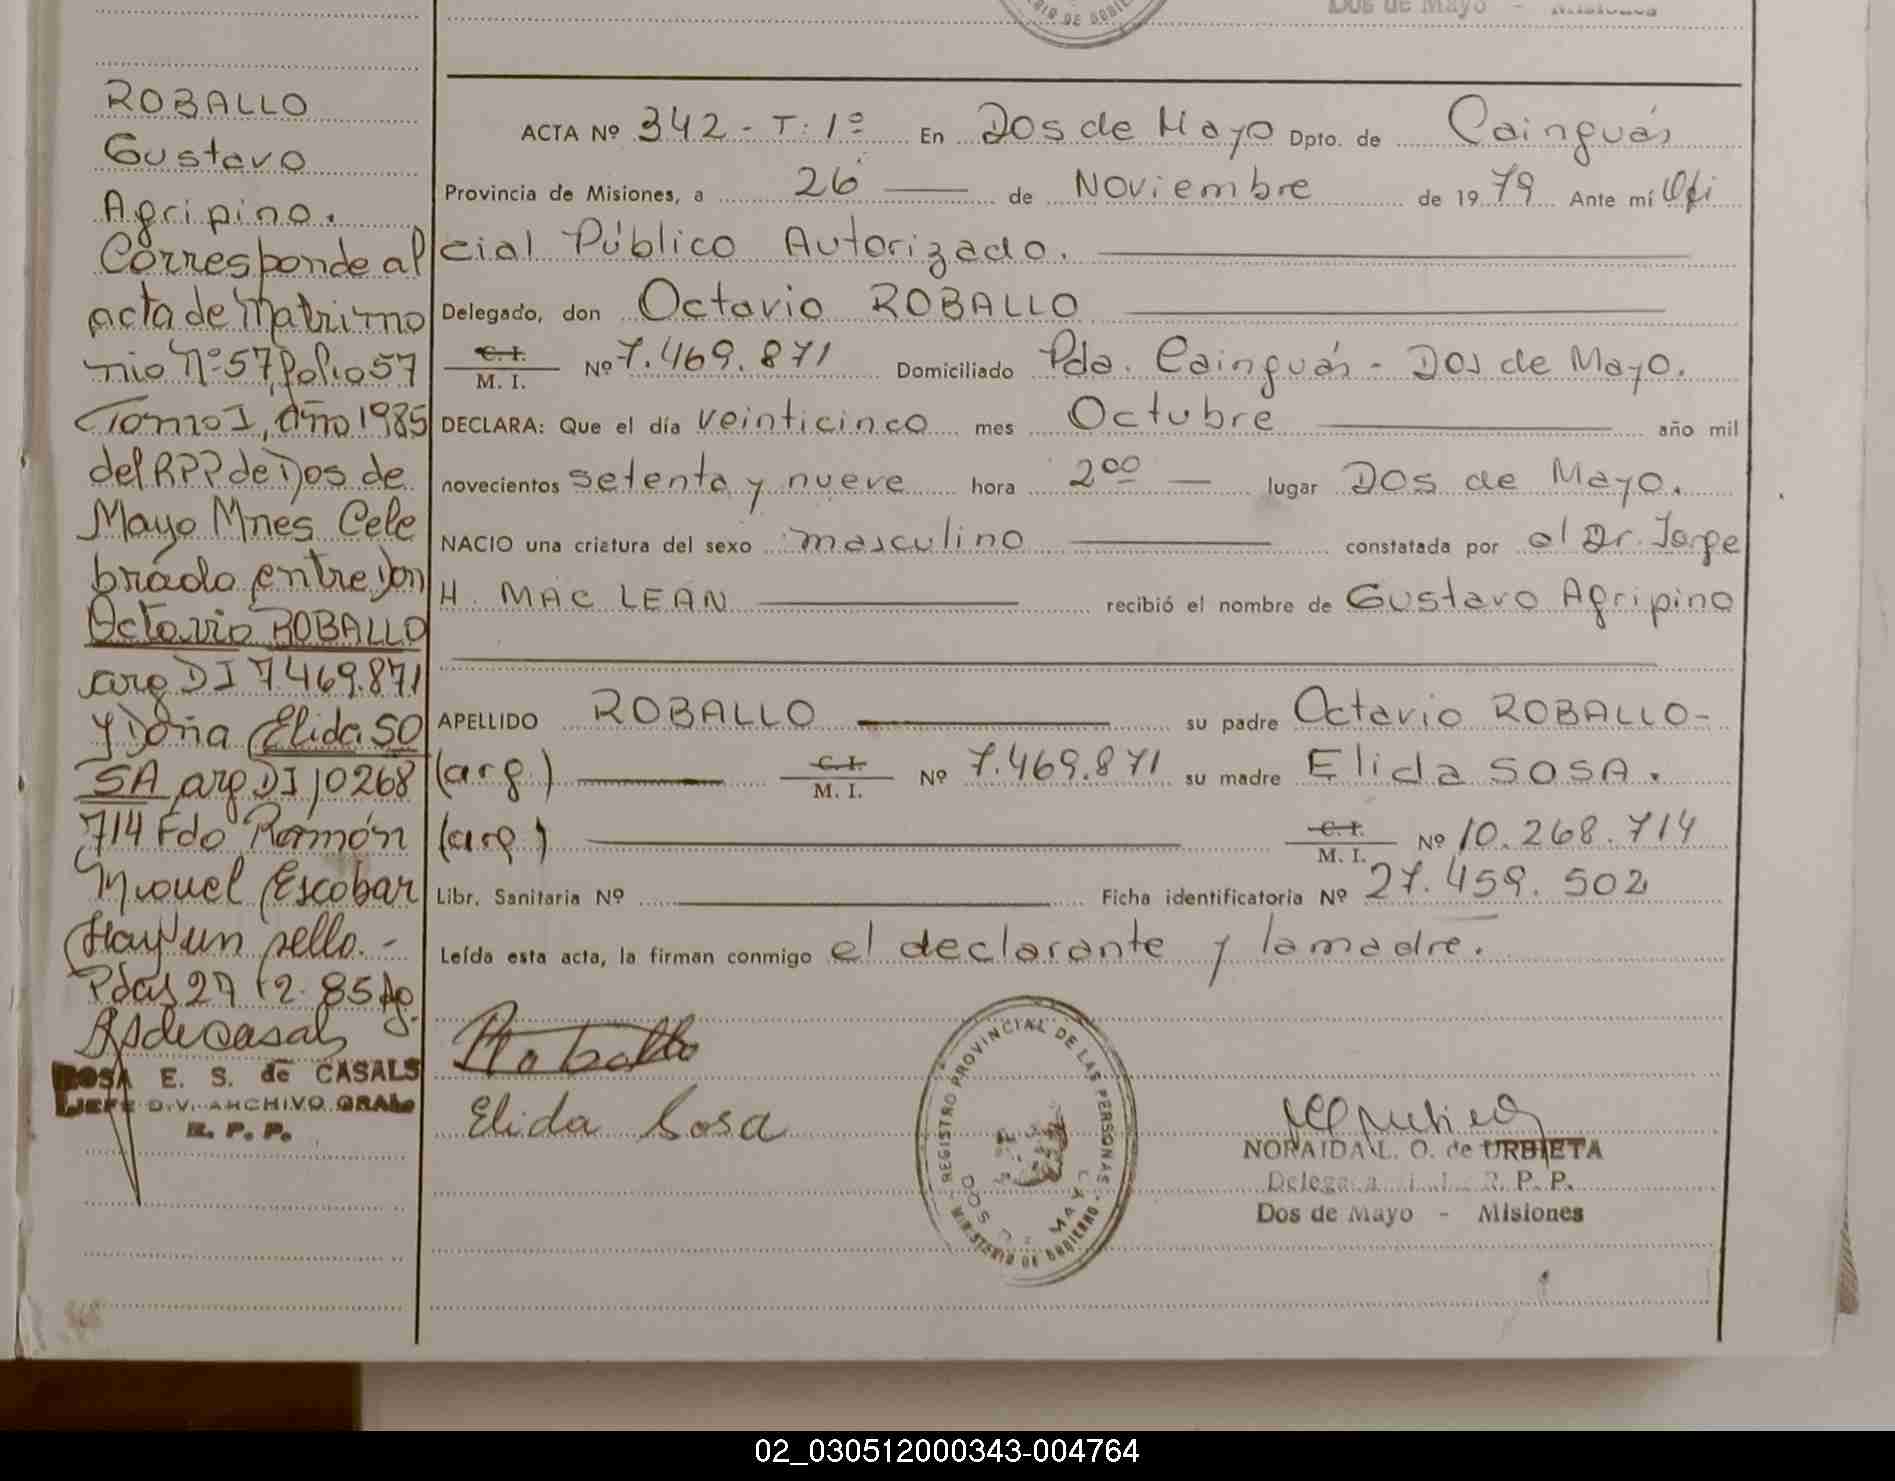 Dos de Mayo - Misiones
ROBALLO
Gustavo
Agripino.
Corresponde al
acta de Matrimo
nio Nº 57, Folio 57
Tomo I, Año 1985
del RPP de Dos de
Mayo Mnes Cele
brado entre Don
Octavio ROBALLO
arg DI 7469.871
y Doña Elida SO
SA arg DI 10268
714 Fdo Ramón
Miguel Escobar
Hay un sello.-
Pdas 27 12. 85
ROSA E. S. de CASALS
JEFE DIV. ARCHIVO GRAL.
R. P. P.
ACTA Nº 342 - T: 1º En Dos de Mayo Dpto. de Cainguás
Provincia de Misiones, a 26 de Noviembre de 1979 Ante mí Ofi
cial Público Autorizado.
Delegado, don Octavio ROBALLO
C. I.
M. I. Nº 7.469.871 Domiciliado Pda. Cainguás - Dos de Mayo.
DECLARA: Que el día veinticinco mes Octubre año mil
novecientos setenta y nueve hora 2 00 lugar Dos de Mayo.
NACIO una criatura del sexo masculino constatada por el Dr. Jorge
H. MAC LEAN recibió el nombre de Gustavo Agripino
APELLIDO ROBALLO su padre Octavio ROBALLO-
(arg.) C. I. M. I. Nº 7.469.871 su madre Elida SOSA.
(arg) C. I. M. I. Nº 10.268.714
Libr. Sanitaria Nº Ficha identificatoria Nº 27.459.502
Leída esta acta, la firman conmigo el declarante y la madre.
Roballo
Elida Sosa
REGISTRO PROVINCIAL DE LAS PERSONAS
MINISTERIO DE GOBIERNO
NORAIDA L. O. de URBIETA
Delegada R. P. P.
Dos de Mayo - Misiones
02_030512000343-004764